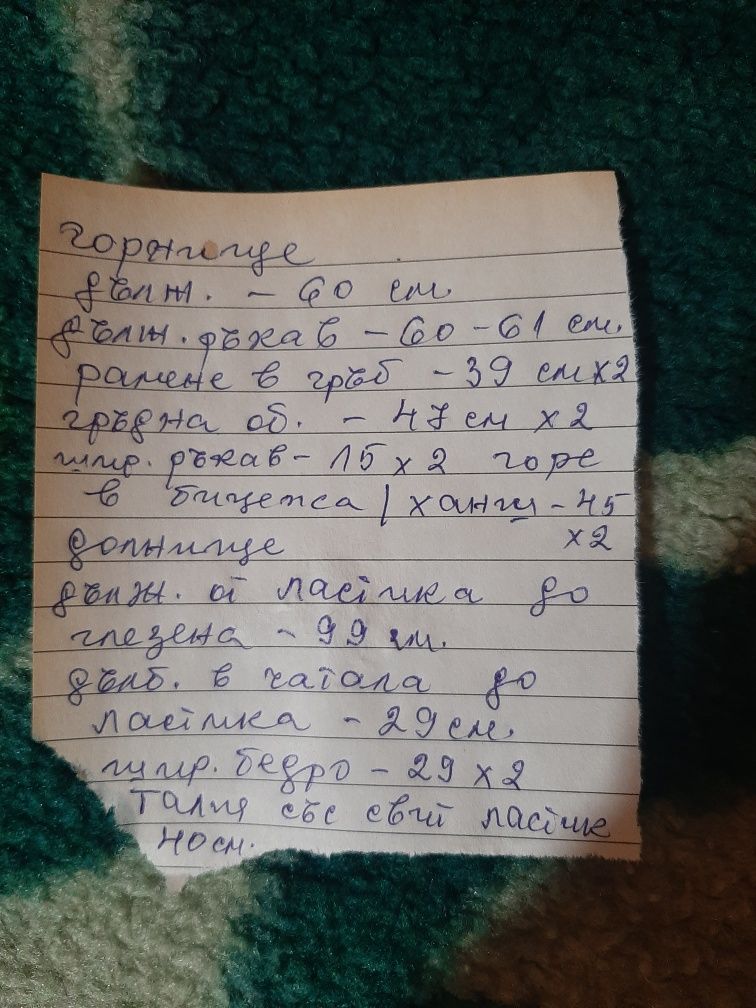 горнище
дълж. - 60 см.
дълж. ръкав - 60 - 61 см.
рамене в гръб - 39 см x2
гръдна об. - 47 см x 2
шир. ръкав - 15 x 2 горе
в бицепса / ханш - 45
долнище x2
дълж. от ластика до
глезена - 99 см.
дълб. в чатала до
ластика - 29 см.
шир. бедро - 29 x 2
талия със свит ластик
40 см.